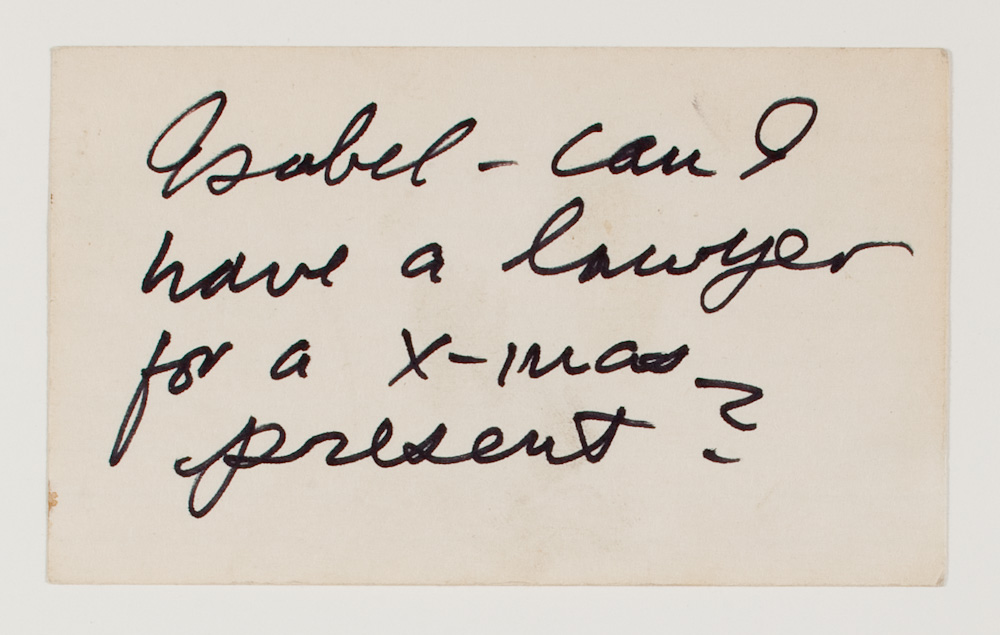 Isabel - can I
have a lawyer
for a X-mas
present?